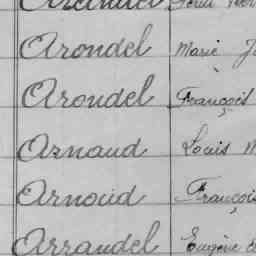 Arondel Marie
Arondel François
Arnaud Louis
Arnoud François
Arrandel Eugène